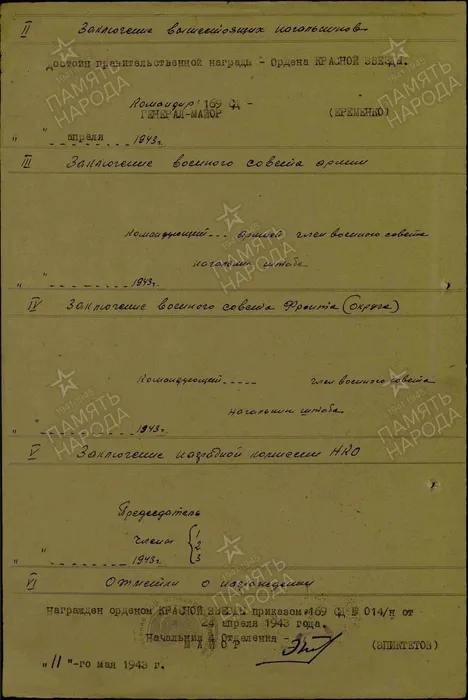 II Заключение вышестоящих начальников
достоин правительственной награды - Ордена КРАСНОЙ ЗВЕЗДЫ.
Командир 169 СД -
ГЕНЕРАЛ-МАЙОР (ЕРЕМЕНКО)
" " апреля 1943г.
III Заключение военного совета армии
Командующий армией член военного совета
начальник штаба
" " 1943г.
IV Заключение военного совета Фронта (округа)
Командующий член военного совета
начальник штаба
" " 1943г.
V Заключение наградной комиссии НКО
Председатель
Члены { 1
2
" " 1943г. 3
VI Отметки о награждении
Награжден орденом КРАСНОЙ ЗВЕЗДЫ приказом 169 СД № 014/н от
24 апреля 1943 года.
Начальник 4 Отделения -
МАЙОР (ЭПИКТЕТОВ)
"11"-го мая 1943 г.
ПАМЯТЬ НАРОДА
1941-1945